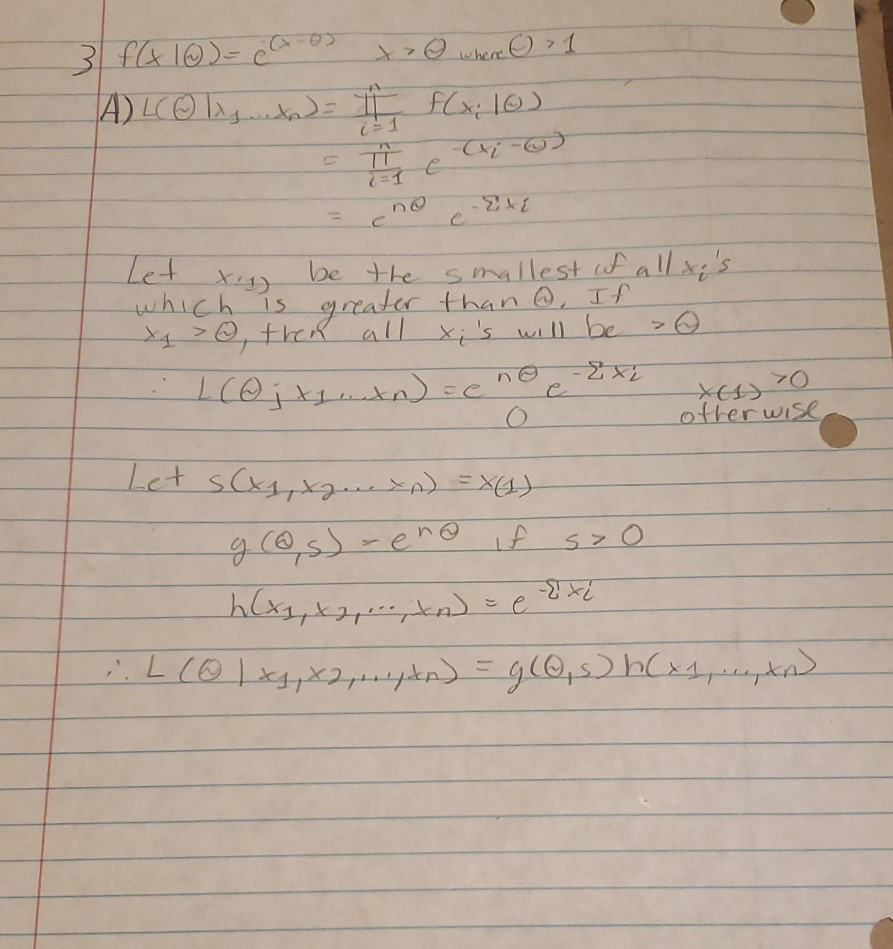 3) f(x|Θ) = e^(x-Θ) x > Θ where Θ > 1
A) L(Θ|x₁...xₙ) = ∏ᵢ₌₁ⁿ f(xᵢ|Θ)
= ∏ᵢ₌₁ⁿ e^-(xᵢ-Θ)
= e^nΘ e^-Σxᵢ
Let x₍₁₎ be the smallest of all xᵢ's
which is greater than Θ. If
x₁ > Θ, then all xᵢ's will be > Θ
∴ L(Θ; x₁...xₙ) = e^nΘ e^-Σxᵢ x₍₁₎ > 0
0 otherwise
Let s(x₁, x₂... xₙ) = x₍₁₎
g(Θ, s) = e^nΘ if s > 0
h(x₁, x₂, ..., xₙ) = e^-Σxᵢ
∴ L(Θ | x₁, x₂, ..., xₙ) = g(Θ, s) h(x₁, ..., xₙ)